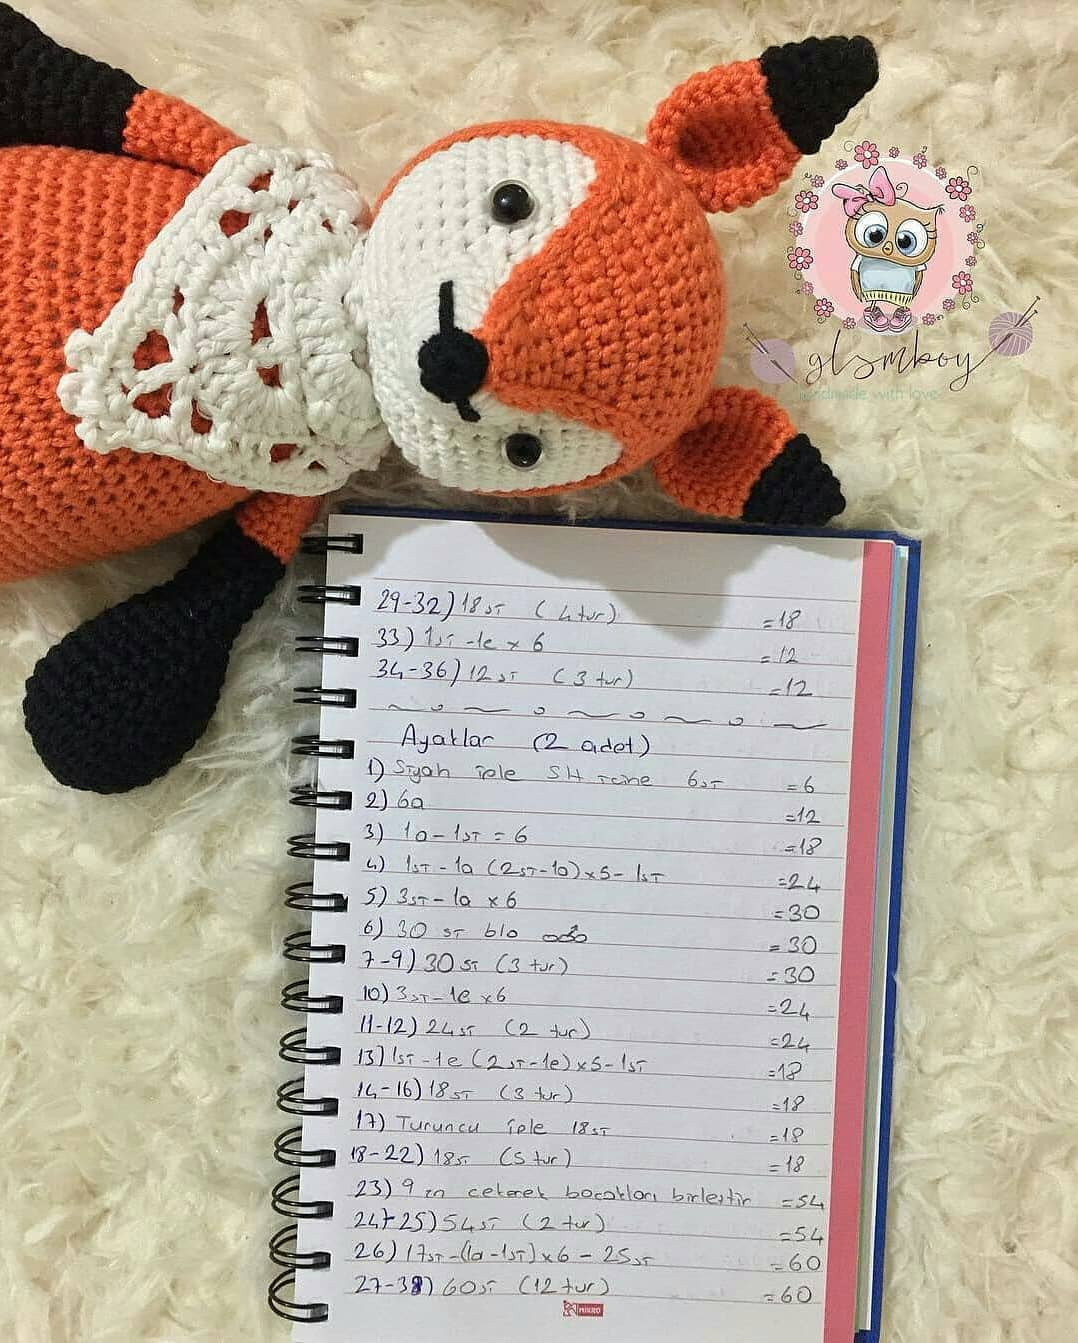 glsmboy
handmade with love
29-32) 18sт (4 tur) =18
33) 1sт -1e x 6 =12
34-36) 12sт (3 tur) =12
Ayaklar (2 adet)
1) Siyah iple SH icine 6sт =6
2) 6a =12
3) 1a-1sт = 6 =18
4) 1sт-1a (2sт-1a)x5-1sт =24
5) 3sт-1a x6 =30
6) 30 sт blo =30
7-9) 30sт (3 tur) =30
10) 3sт-1e x6 =24
11-12) 24sт (2 tur) =24
13) 1sт-1e (2sт-1e)x5-1sт =18
14-16) 18sт (3 tur) =18
17) Turuncu iple 18sт =18
18-22) 18sт (5 tur) =18
23) 9 zn cekerek bacakları birleştir =54
24-25) 54sт (2 tur) =54
26) 17sт-(1a-1sт)x6-25sт =60
27-38) 60sт (12 tur) =60
MİKRO